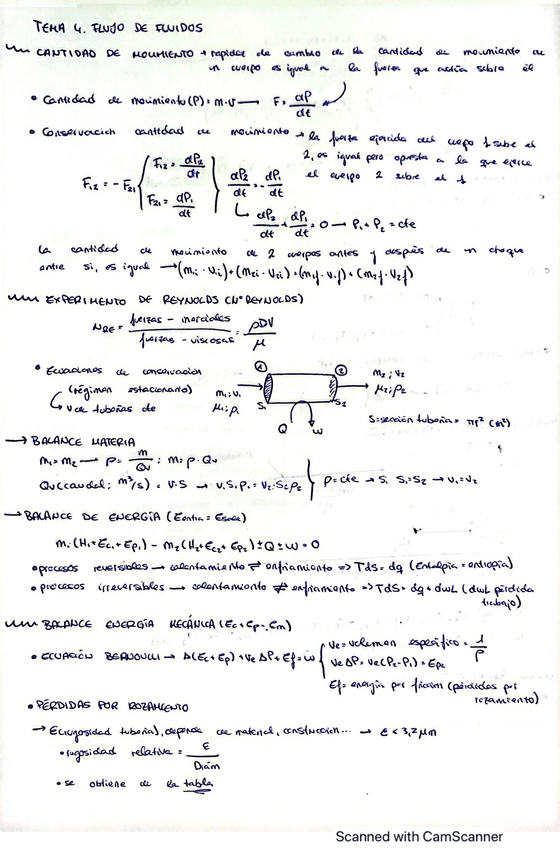 TEMA 4. FLUJO DE FLUIDOS
CANTIDAD DE MOVIMIENTO → rapidez de cambio de la cantidad de movimiento de
un cuerpo es igual a la fuerza que actúa sobre él
• Cantidad de movimiento (P) = m·v → F = dP/dt
• Conservación cantidad de movimiento → la fuerza ejercida del cuerpo 1 sobre el
2, es igual pero opuesta a la que ejerce
el cuerpo 2 sobre el 1
F12 = - F21 { F12 = dP2/dt
F21 = dP1/dt } dP2/dt = - dP1/dt
dP2/dt + dP1/dt = 0 → P1 + P2 = cte
La cantidad de movimiento de 2 cuerpos antes y después de un choque
entre sí, es igual → (m1i · v1i) + (m2i · v2i) = (m1f · v1f) + (m2f · v2f)
EXPERIMENTO DE REYNOLDS (Nº REYNOLDS)
NRE = fuerzas - inerciales / fuerzas - viscosas = ρDV / μ
• Ecuaciones de conservación
(régimen estacionario)
↳ v de tuberías de
① ②
m1; v1
μ1; ρ1
S1 S2
m2; v2
μ2; ρ2
Q W
S = sección tubería = πr² (m²)
→ BALANCE MATERIA
m1 = m2 → ρ = m/Qv ; m = ρ · Qv
Qv (caudal; m³/s) = v·S → v1 S1 ρ1 = v2 · S2 ρ2 } ρ = cte → si S1 = S2 → v1 = v2
→ BALANCE DE ENERGÍA (Eentra = Esale)
m1 (H1 + Ec1 + Ep1) - m2 (H2 + Ec2 + Ep2) ± Q ± W = 0
• procesos reversibles → calentamiento ⇄ enfriamiento => TdS = dq (Entalpía = entropía)
• procesos irreversibles → calentamiento ⇄ enfriamiento => TdS = dq + dwL (dwL pérdida
trabajo)
BALANCE ENERGÍA MECÁNICA (Ec + Ep = Em)
• ECUACIÓN BERNOULLI → Δ(Ec + Ep) + Ve ΔP + Ef = W { Ve = volumen específico = 1/ρ
Ve ΔP = Ve (P2 - P1) = Epe
Ef = energía por fricción (pérdidas por
rozamiento)
• PÉRDIDAS POR ROZAMIENTO
→ ε (rugosidad tubería), depende de material, construcción... → ε < 3,2 μm
• rugosidad relativa = ε / Diám
• se obtiene de la tabla
Scanned with CamScanner